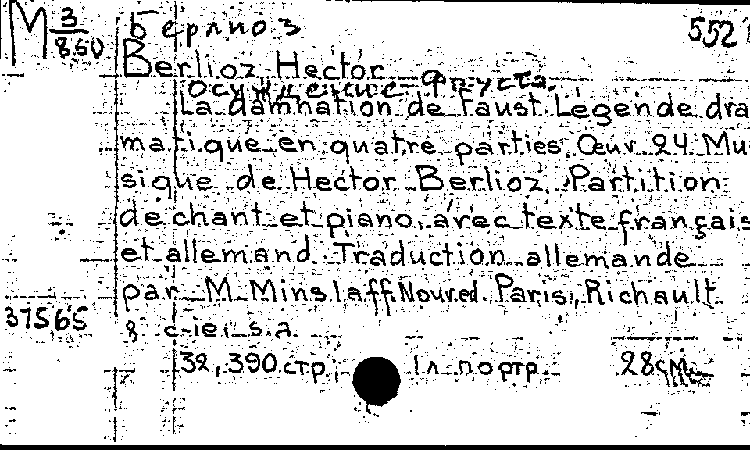 М 3/860
Берлиоз
552
Berlioz Hector
Осуждение Фауста.
La damnation de Faust Légende dra
matique en quatre parties. Œuv. 24. Mu
sique de Hector Berlioz. Partition
de chant et piano, avec texte français
et allemand. Traduction allemande
par M. Minslaff. Nouv. ed. Paris, Richault
37565
& c-ie, s.a.
32, 390 стр., 1 л. портр. 28 см.